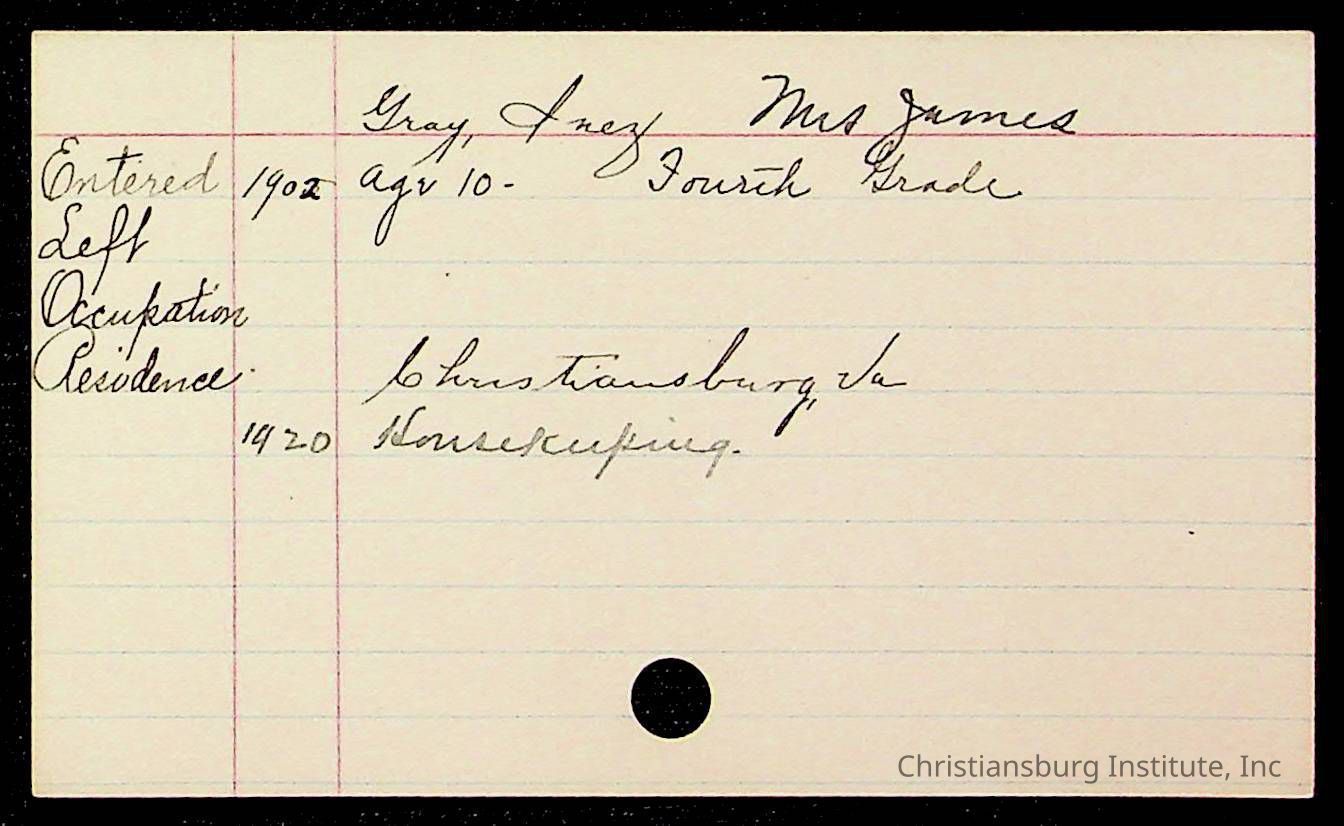 Gray, Inez Mrs James
Entered 1902 Age 10- Fourth Grade
Left
Occupation
Residence. Christiansburg, Va
1920 Housekeeping.
Christiansburg Institute, Inc